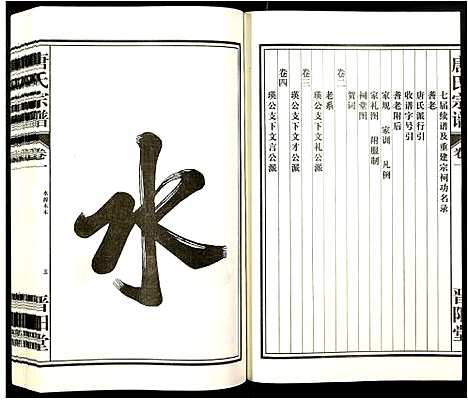 唐氏宗谱
卷一
七届续谱及重建宗祠功名录
耆老
唐氏派行引
收谱字号引
耆老附后
家规 家训 凡例
家礼图 附服制
祠堂图
贺词
卷二
老系
瑛公支下文礼公派
卷三
瑛公支下文才公派
卷四
瑛公支下文言公派
晋阳堂
水
唐氏宗谱
卷一
水源木本
五
晋阳堂